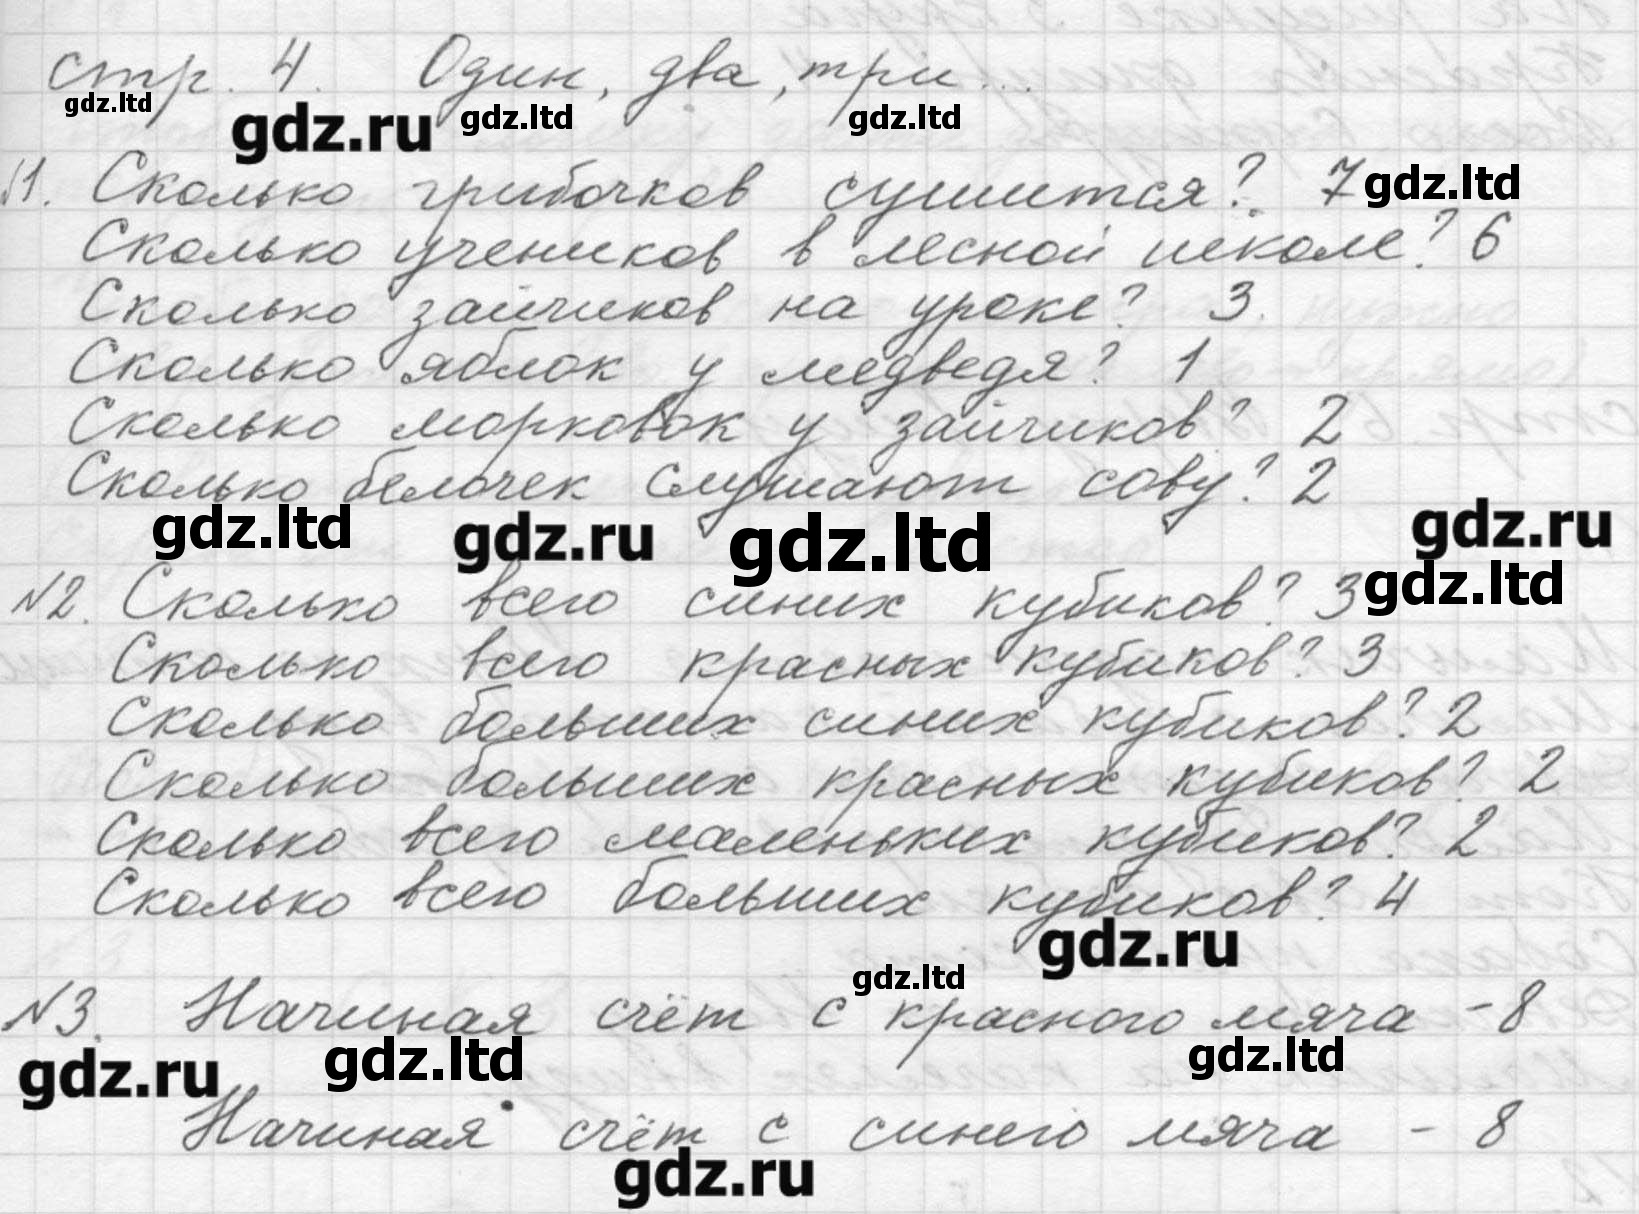 стр. 4. Один, два, три...
gdz.ltd gdz.ru gdz.ltd gdz.ltd
№1. Сколько грибочков сушится? 7 gdz.ltd
Сколько учеников в лесной школе? 6
Сколько зайчиков на уроке? 3.
Сколько яблок у медведя? 1
Сколько морковок у зайчиков? 2
Сколько белочек слушают сову? 2
gdz.ltd gdz.ru gdz.ltd gdz.ru
№2. Сколько всего синих кубиков? 3 gdz.ltd
Сколько всего красных кубиков? 3
Сколько больших синих кубиков? 2
Сколько больших красных кубиков? 2
Сколько всего маленьких кубиков? 2
Сколько всего больших кубиков? 4
gdz.ltd gdz.ru
№3. Начиная счёт с красного мяча - 8
gdz.ru gdz.ltd gdz.ltd
Начиная счёт с синего мяча - 8
gdz.ru